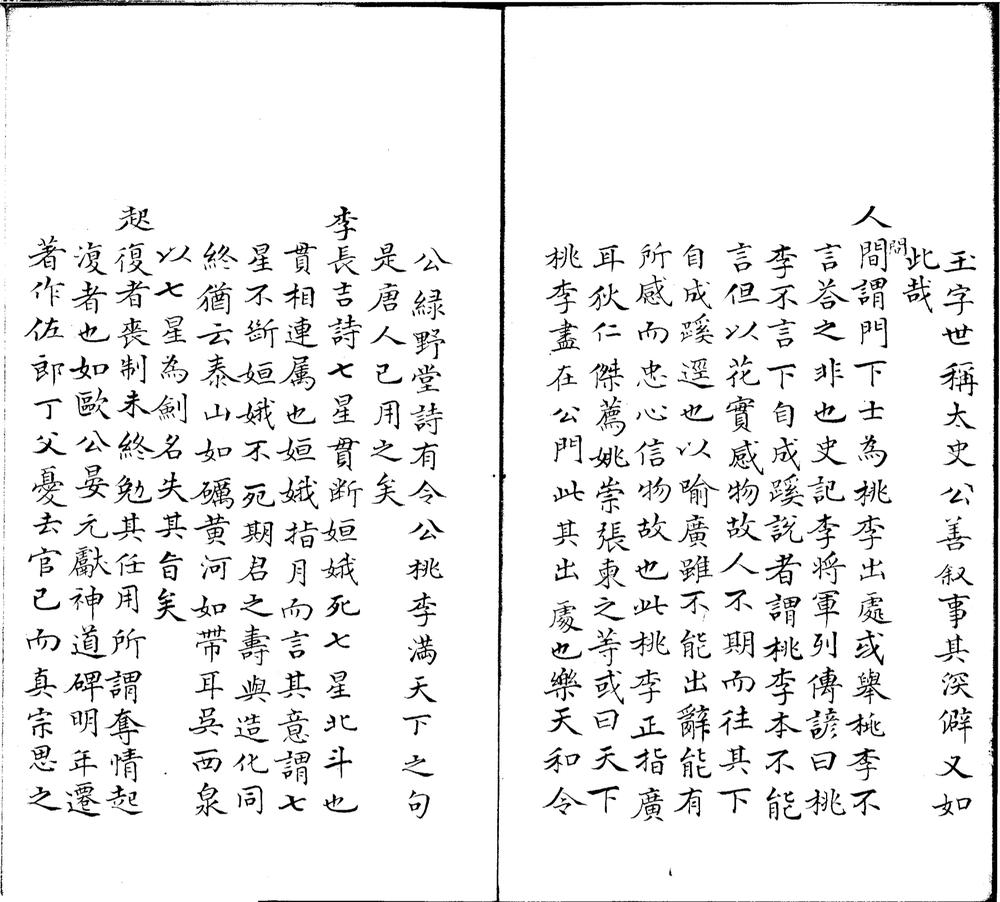 玉字世稱太史公善叙事其深僻又如
此哉
人間謂門下士為桃李出處或舉桃李不
問
言荅之非也史記李将軍列傳諺曰桃
李不言下自成蹊說者謂桃李本不能
言但以花實感物故人不期而往其下
自成蹊逕也以喻廣雖不能出辭能有
所感而忠心信物故也此桃李正指廣
耳狄仁傑薦姚崇張柬之等或曰天下
桃李盡在公門此其出處也樂天和令
公緑野堂詩有令公桃李满天下之句
是唐人已用之矣
李長吉詩七星貫断姮娥死七星北斗也
貫相連属也姮娥指月而言其意謂七
星不斷姮娥不死期君之壽與造化同
終猶云泰山如礪黄河如帶耳吳西泉
以七星為劍名失其旨矣
起復者喪制未終勉其任用所謂奪情起
復者也如歐公晏元獻神道碑明年遷
著作佐郎丁父憂去官已而真宗思之